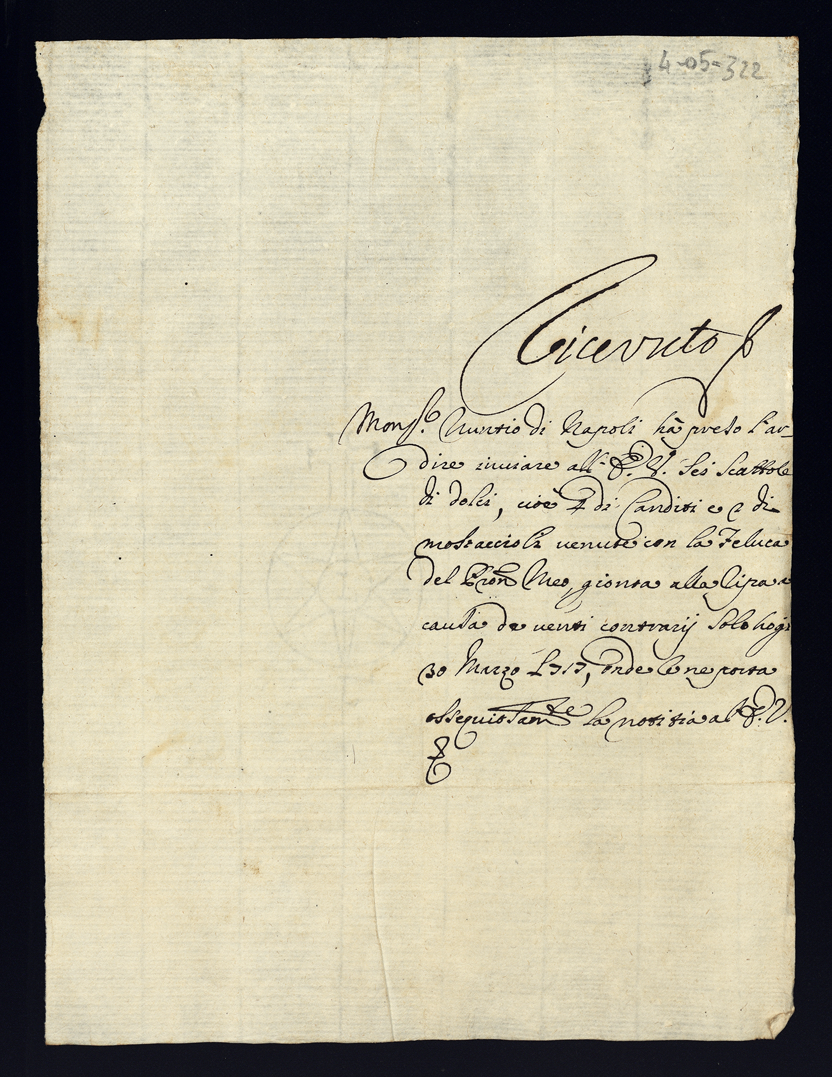 4-05-322
Ricevuto
Mons.r Nuntio di Napoli hà preso l'ar-
dire inviare all' E. V. sei scattole
di dolci, cioè 4 di Canditi e 2 di
mostaccioli venute con la Feluca
del Pron Meo, gionta alla Ripa a
causa de venti contrarij solo hoggi
30 Marzo 1717, onde se ne porta
ossequiosam.te la notitia a V. E.